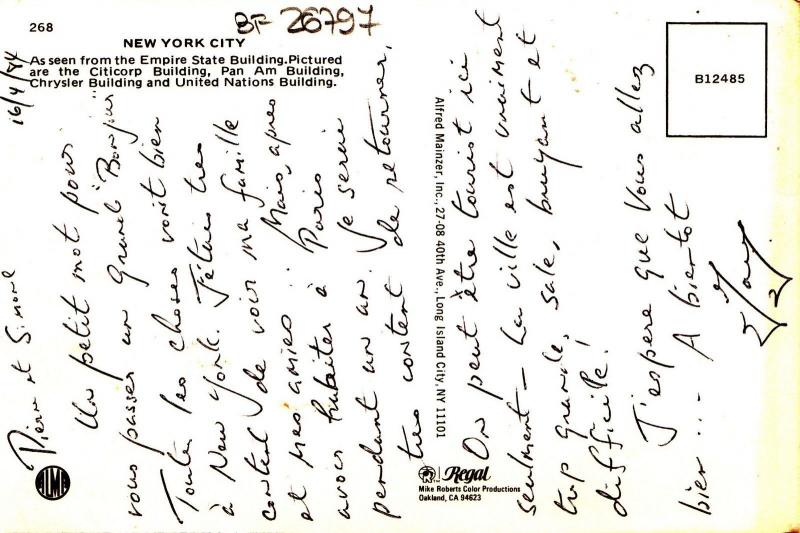 268
BF 26797
NEW YORK CITY
As seen from the Empire State Building. Pictured
are the Citicorp Building, Pan Am Building,
Chrysler Building and United Nations Building.
16/4/84
Pierre et Simone
Un petit mot pour
vous passer un grand "Bonjour"
Toutes les choses vont bien
à New York. J'étais tres
content de voir ma famille
et mes amies.. Mais, apres
avoir habiter à Paris
pendant un an. Je serai
tres content de retourner.
Alfred Mainzer, Inc., 27-08 40th Ave., Long Island City, NY 11101
Regal
Mike Roberts Color Productions
Oakland, CA 94623
On peut être tourist ici
seulment – La ville est vraiment
trop grande, sale, bruyant et
difficile!
J'espere que vous allez
bien... A bientot
B12485